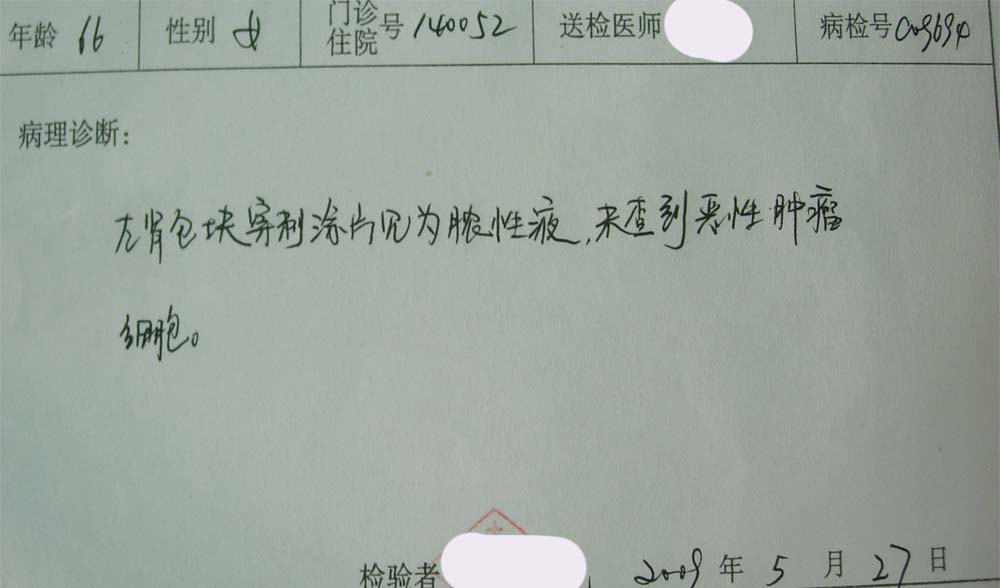 年龄 66 性别 女 门诊住院号 140052 送检医师 病检号
病理诊断:
左肾包块穿刺涂片见为脓性液,未查到恶性肿瘤
细胞。
检验者 2009 年 5 月 27 日